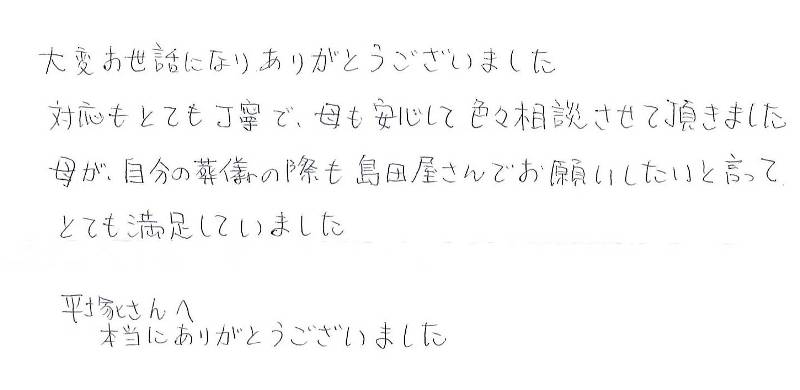 大変お世話になりありがとうございました
対応もとても丁寧で、母も安心して色々相談させて頂きました
母が、自分の葬儀の際も島田屋さんでお願いしたいと言って
とても満足していました
平塚さんへ
本当にありがとうございました